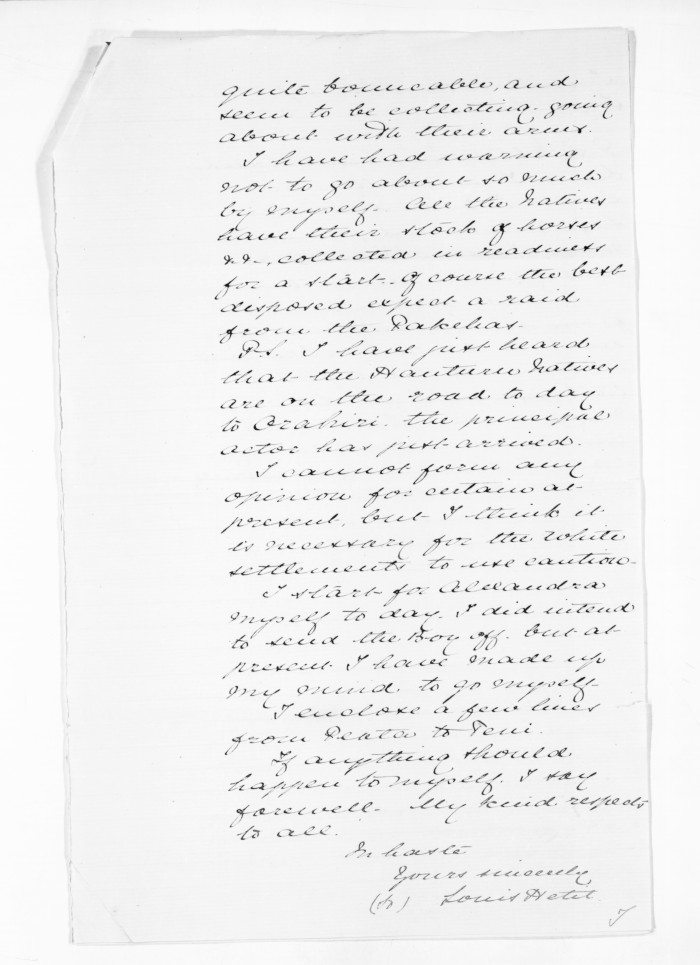 quite bounceable, and
seem to be collecting. going
about with their arms.
I have had warning
not to go about so much
by myself. All the Natives
have their stock of horses
&&., collected in readiness
for a start. Of course the best
disposed expect a raid
from the Pakehas.
P.S. I have just heard
that the Hauturu Natives
are on the road to day
to Orahiri. the principal
actor has just arrived.
I cannot form any
opinion for certain at
present, but I think it
is necessary for the white
settlements to use caution.
I start for Alexandra
myself to day. I did intend
to send the Boy off. but at
present I have made up
my mind to go myself.
I enclose a few lines
from to
If anything should
happen to myself. I say
farewell. My kind respects
to all.
In haste
Yours sincerely
Louis Hetit.